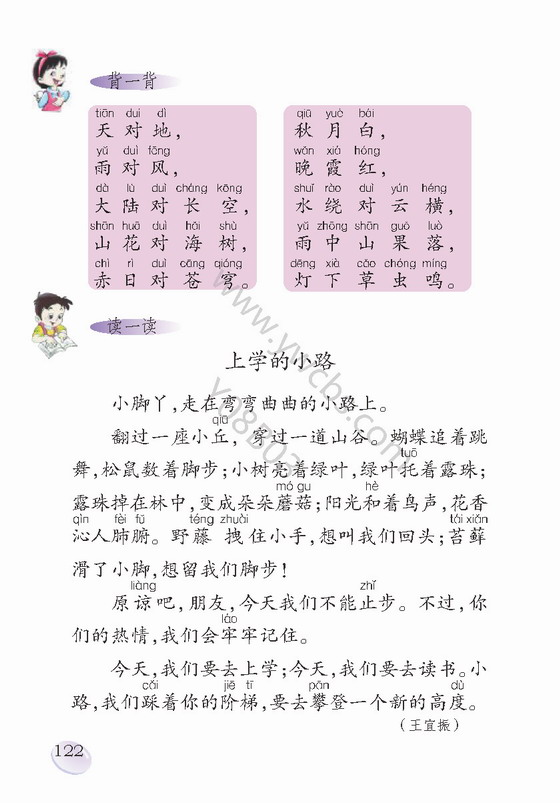 背一背
tiān duì dì
天对地，
yǔ duì fēng
雨对风，
dà lù duì cháng kōng
大陆对长空，
shān huā duì hǎi shù
山花对海树，
chì rì duì cāng qióng
赤日对苍穹。
qiū yuè bái
秋月白，
wǎn xiá hóng
晚霞红，
shuǐ rào duì yún héng
水绕对云横，
yǔ zhōng shān guǒ luò
雨中山果落，
dēng xià cǎo chóng míng
灯下草虫鸣。
读一读
上学的小路
小脚丫，走在弯弯曲曲的小路上。
qiū
翻过一座小丘，穿过一道山谷。蝴蝶追着跳
tuō
舞，松鼠数着脚步；小树亮着绿叶，绿叶托着露珠；
mó gu hè
露珠掉在林中，变成朵朵蘑菇；阳光和着鸟声，花香
qìn fèi fǔ téng zhuài tái xiǎn
沁人肺腑。野藤拽住小手，想叫我们回头；苔藓
滑了小脚，想留我们脚步！
liàng zhǐ
原谅吧，朋友，今天我们不能止步。不过，你
láo
们的热情，我们会牢牢记住。
今天，我们要去上学；今天，我们要去读书。小
cǎi jiē tī pān dù
路，我们踩着你的阶梯，要去攀登一个新的高度。
（王宜振）
122
www.ywcbs.com